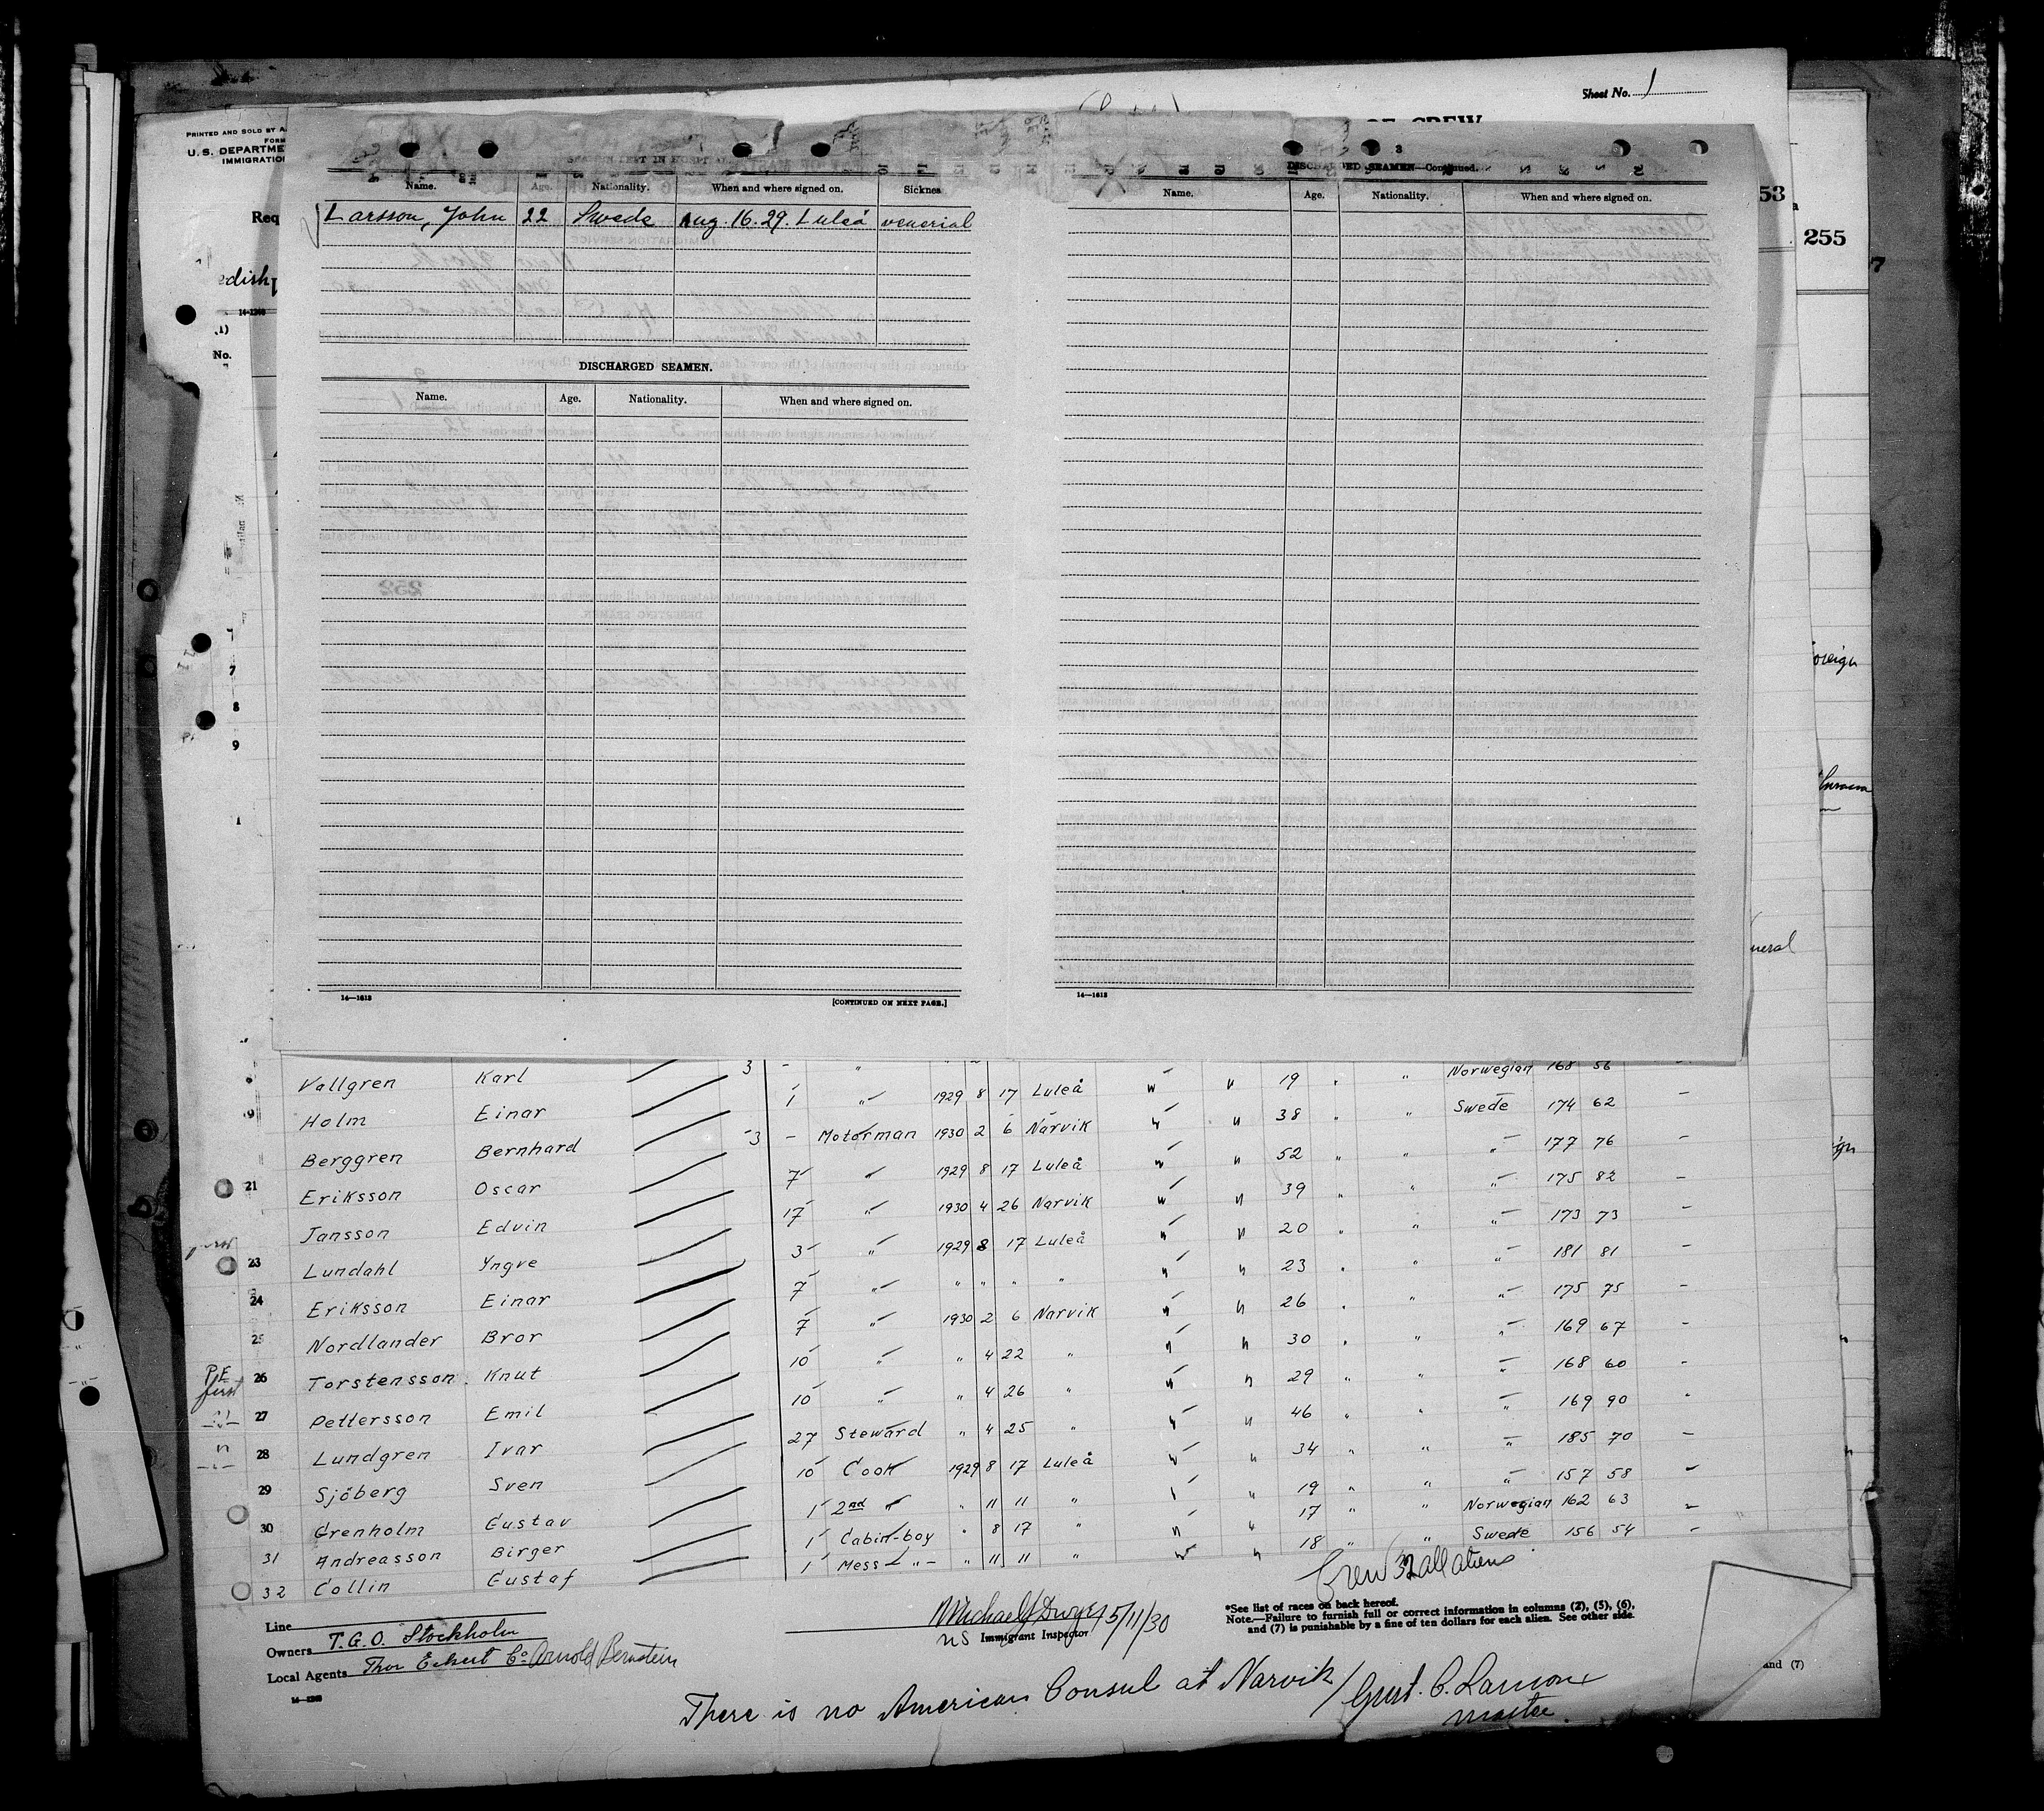 Sheet No. 1
PRINTED AND SOLD BY
FORM
U. S. DEPARTME
IMMIGRATIO
OF CREW
3
DISCHARGED SEAMEN—Continued.
Name. Age. Nationality. When and where signed on. Sicknes
Name. Age. Nationality. When and where signed on.
Larsson, John 22 Swede Aug. 16. 29. Luleå venerial
53
255
Req
edish
14-1240
(1)
No.
DISCHARGED SEAMEN.
Name. Age. Nationality. When and where signed on.
252
7
8
9
1
oreign
neral
14—1613 [CONTINUED ON NEXT PAGE.]
14—1613
Vallgren Karl 3 - " 19 " " Norwegian 168 56 -
Holm Einar 1 " 1929 8 17 Luleå " " 38 " " Swede 174 62 -
Berggren Bernhard 3 - Motorman 1930 2 6 Narvik " " 52 " " " 177 76 -
21 Eriksson Oscar 7 " 1929 8 17 Luleå " " 39 " " " 175 82 -
Jansson Edvin 17 " 1930 4 26 Narvik " " 20 " " " 173 73 -
23 Lundahl Yngve 3 " 1929 8 17 Luleå " " 23 " " " 181 81 -
24 Eriksson Einar 7 " " " " " " " 26 " " " 175 75 -
25 Nordlander Bror 7 " 1930 2 6 Narvik " " 30 " " " 169 67 -
P.E. first 26 Torstensson Knut 10 " " 4 22 " " " 29 " " " 168 60 -
27 Pettersson Emil 10 " " 4 26 " " " 46 " " " 169 90 "
28 Lundgren Ivar 27 Steward " 4 25 " " " 34 " " " 185 70 -
29 Sjöberg Sven 10 Cook 1929 8 17 Luleå " " 19 " " " 157 58 -
30 Grenholm Gustav 1 2nd " " 11 11 " " " 17 " " Norwegian 162 63 -
31 Andreasson Birger 1 Cabin-boy " 8 17 " " " 18 " " Swede 156 54 -
32 Collin Gustaf 1 Mess - " - " 11 11 " " "
Crew 32 all aliens
Line
Owners T.G.O. Stockholm
Local Agents Thor Eckert Co Arnold Bernstein
14-1240
Michael J Dwyer 5/11/30
NS Immigrant Inspector
*See list of races on back hereof.
Note.—Failure to furnish full or correct information in columns (2), (5), (6),
and (7) is punishable by a fine of ten dollars for each alien. See other side.
and (7)
There is no American Consul at Narvik / Gust. C. Larsson
master.